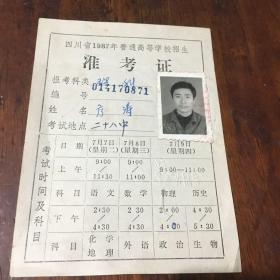 四川省1987年普通高等学校招生
准考证
报考科类 理科
编号 013170871
姓名
考试地点 二十八中
考试时间及科目
日期 7月7日(星期二) 7月8日(星期三) 7月9日(星期四)
上午 9:00 / 11:30 9:00 / 11:00
科目 语文 数学 物理 历史
下午 2:30 / 4:30 2:30 / 4:30 2:00 / 4:00 4:30 / 5:30
科目 化学 地理 外语 政治 生物